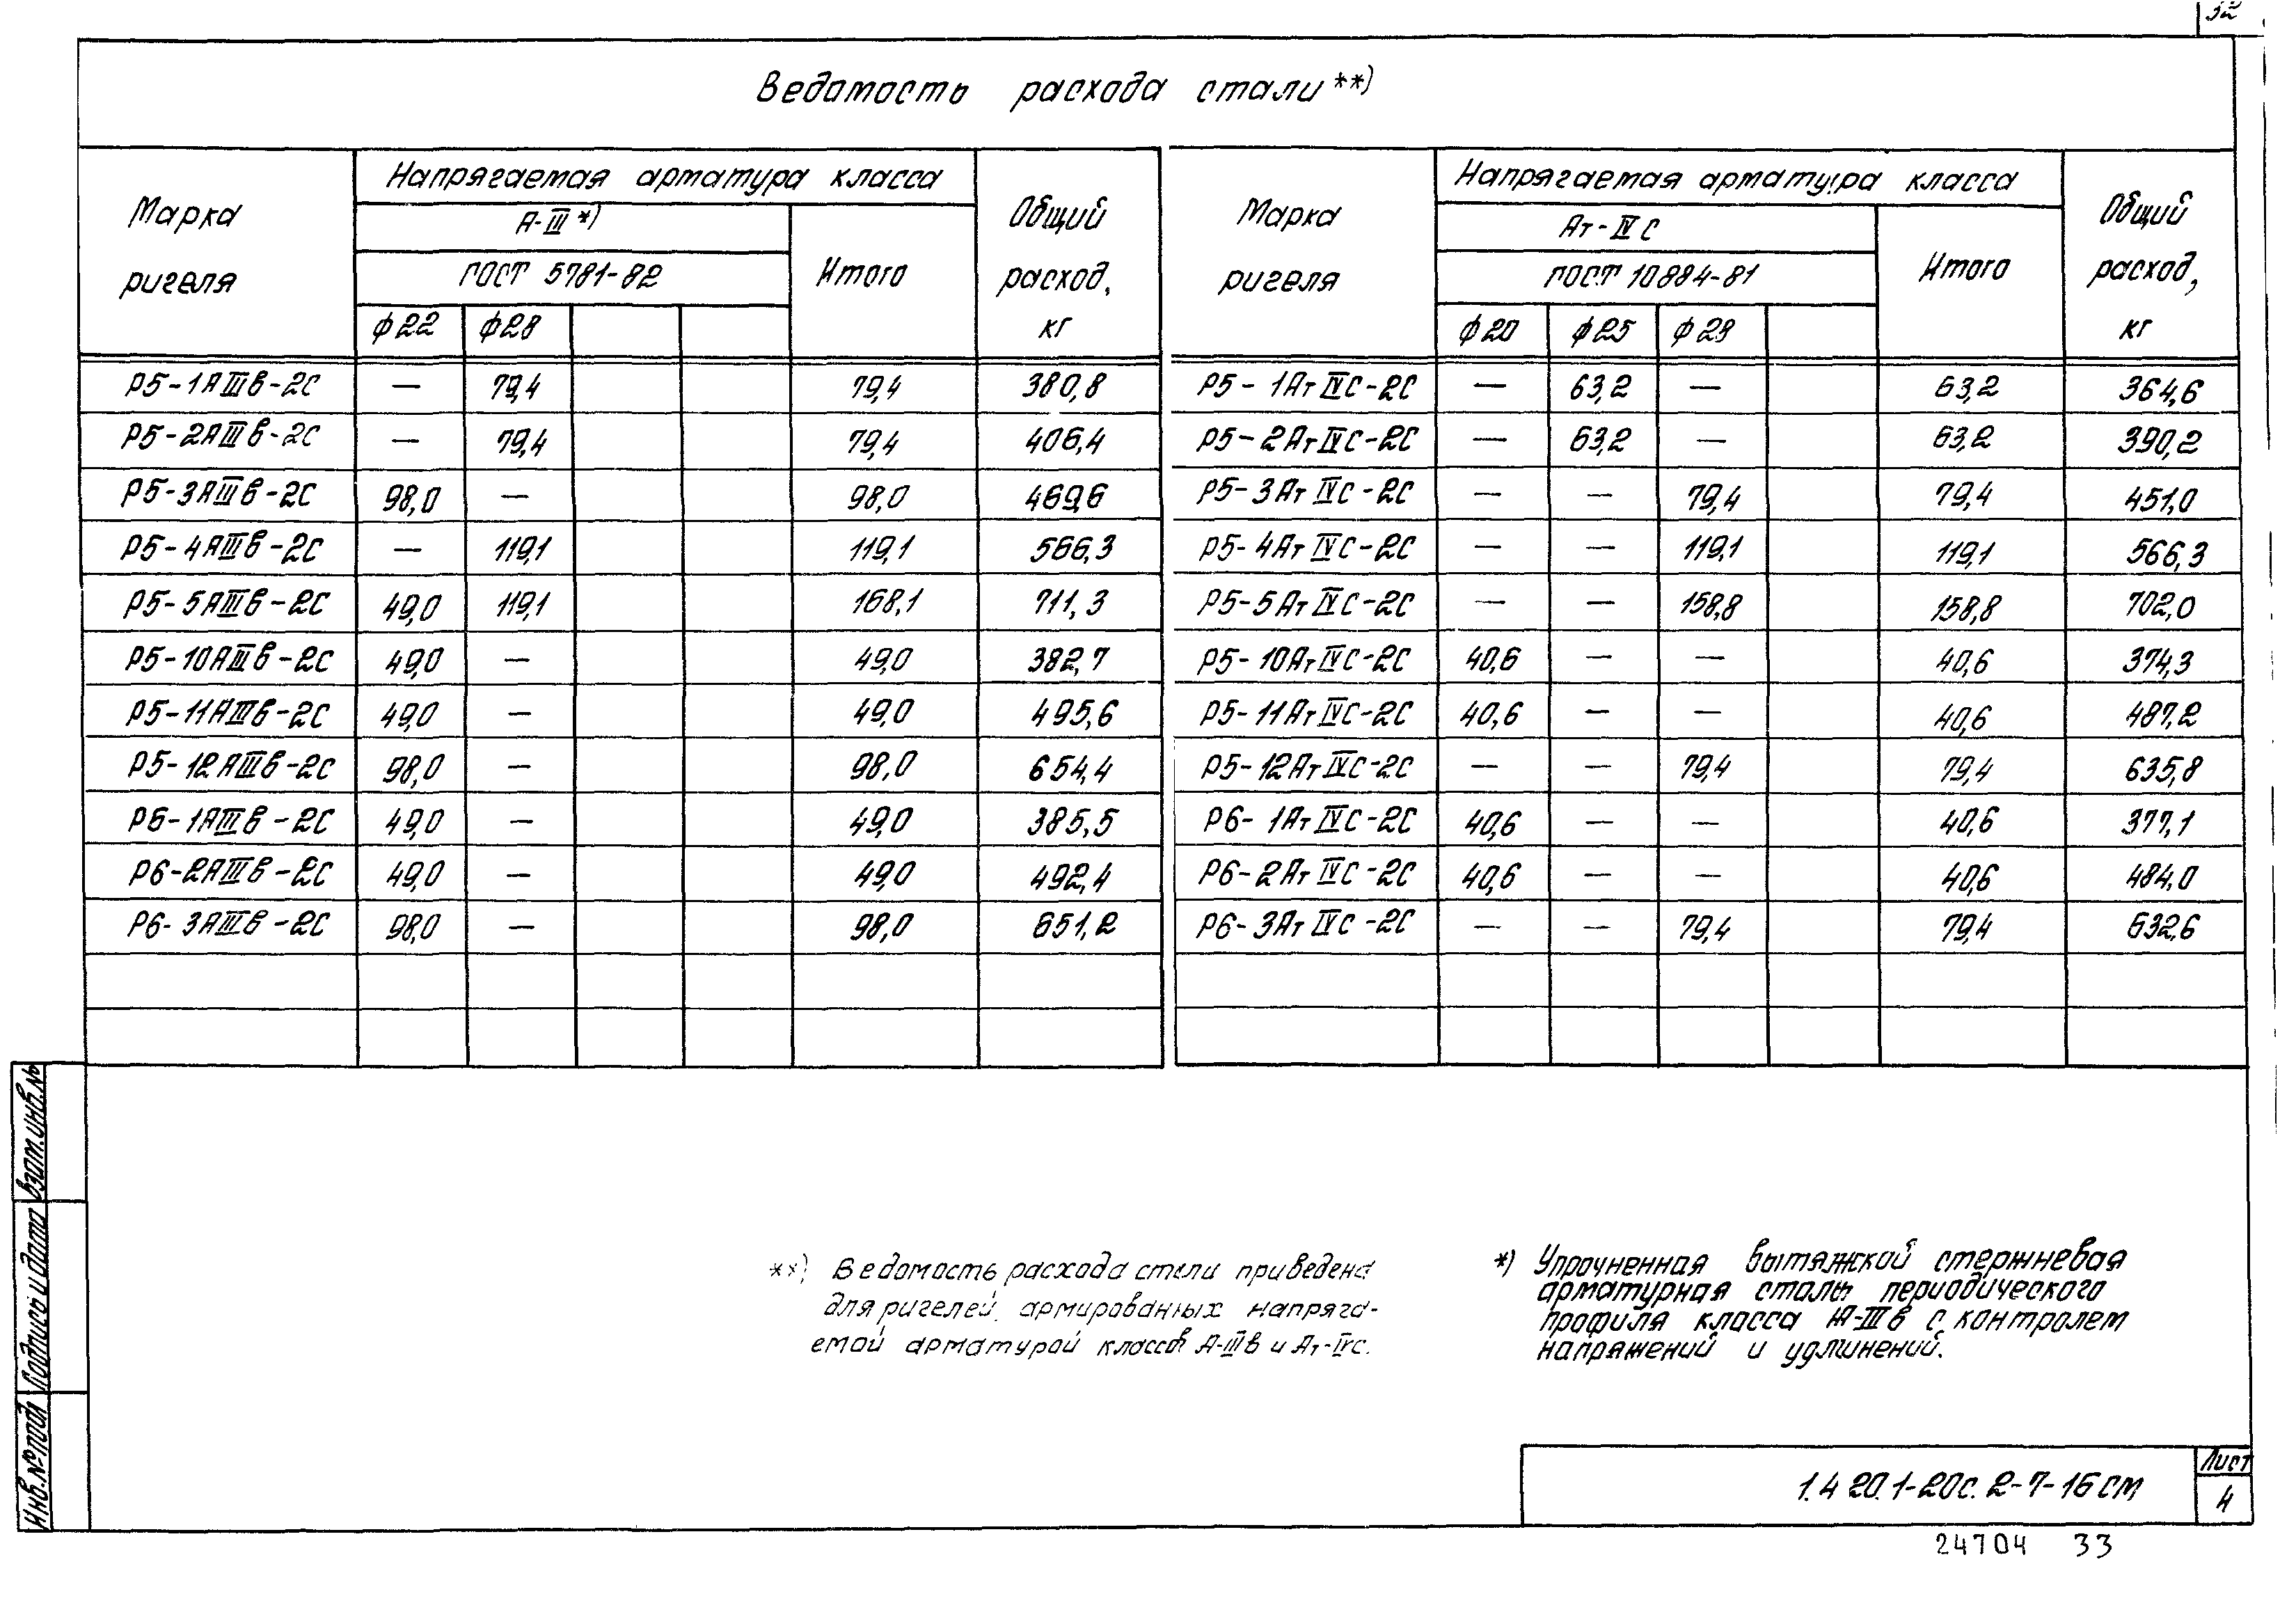 32
Ведомость расхода стали **)
Марка ригеля
Напрягаемая арматура класса
Общий расход, кг
А-III *)
Итого
ГОСТ 5781-82
ф22 ф28
Р5-1АIIIв-2С — 79,4 79,4 380,8
Р5-2АIIIв-2С — 79,4 79,4 406,4
Р5-3АIIIв-2С 98,0 — 98,0 469,6
Р5-4АIIIв-2С — 119,1 119,1 566,3
Р5-5АIIIв-2С 49,0 119,1 168,1 711,3
Р5-10АIIIв-2С 49,0 — 49,0 382,7
Р5-11АIIIв-2С 49,0 — 49,0 495,6
Р5-12АIIIв-2С 98,0 — 98,0 654,4
Р6-1АIIIв-2С 49,0 — 49,0 385,5
Р6-2АIIIв-2С 49,0 — 49,0 492,4
Р6-3АIIIв-2С 98,0 — 98,0 651,2
Марка ригеля
Напрягаемая арматура класса
Общий расход, кг
Ат-IVС
Итого
ГОСТ 10884-81
ф20 ф25 ф28
Р5-1АтIVС-2С — 63,2 — 63,2 364,6
Р5-2АтIVС-2С — 63,2 — 63,2 390,2
Р5-3АтIVС-2С — — 79,4 79,4 451,0
Р5-4АтIVС-2С — — 119,1 119,1 566,3
Р5-5АтIVС-2С — — 158,8 158,8 702,0
Р5-10АтIVС-2С 40,6 — — 40,6 374,3
Р5-11АтIVС-2С 40,6 — — 40,6 487,2
Р5-12АтIVС-2С — — 79,4 79,4 635,8
Р6-1АтIVС-2С 40,6 — — 40,6 377,1
Р6-2АтIVС-2С 40,6 — — 40,6 484,0
Р6-3АтIVС-2С — — 79,4 79,4 632,6
**) Ведомость расхода стали приведена
для ригелей, армированных напряга-
емой арматурой классов А-IIIв и Ат-IVс.
*) Упрочненная вытяжкой стержневая
арматурная сталь периодического
профиля класса А-IIIв с контролем
напряжений и удлинений.
Взам.инв.№
Подпись и дата
Инв.№ подл
1.420.1-20с.2-7-16СМ
Лист
4
24704 33